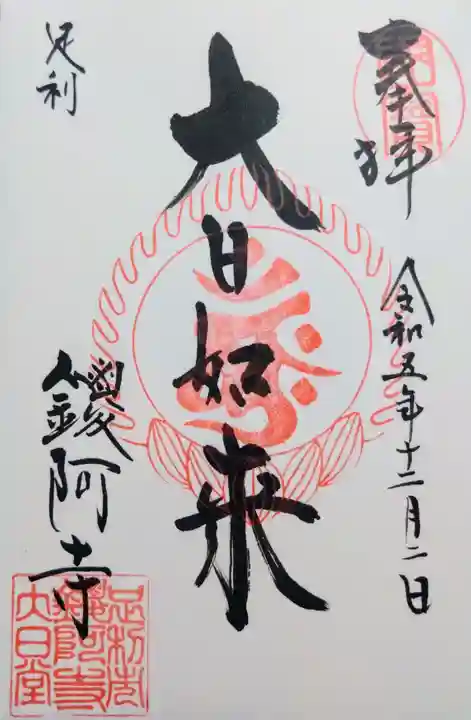 奉拜
令和五年十二月二日
大日如来
足利
鑁阿寺
足利市
鑁阿寺
大日堂